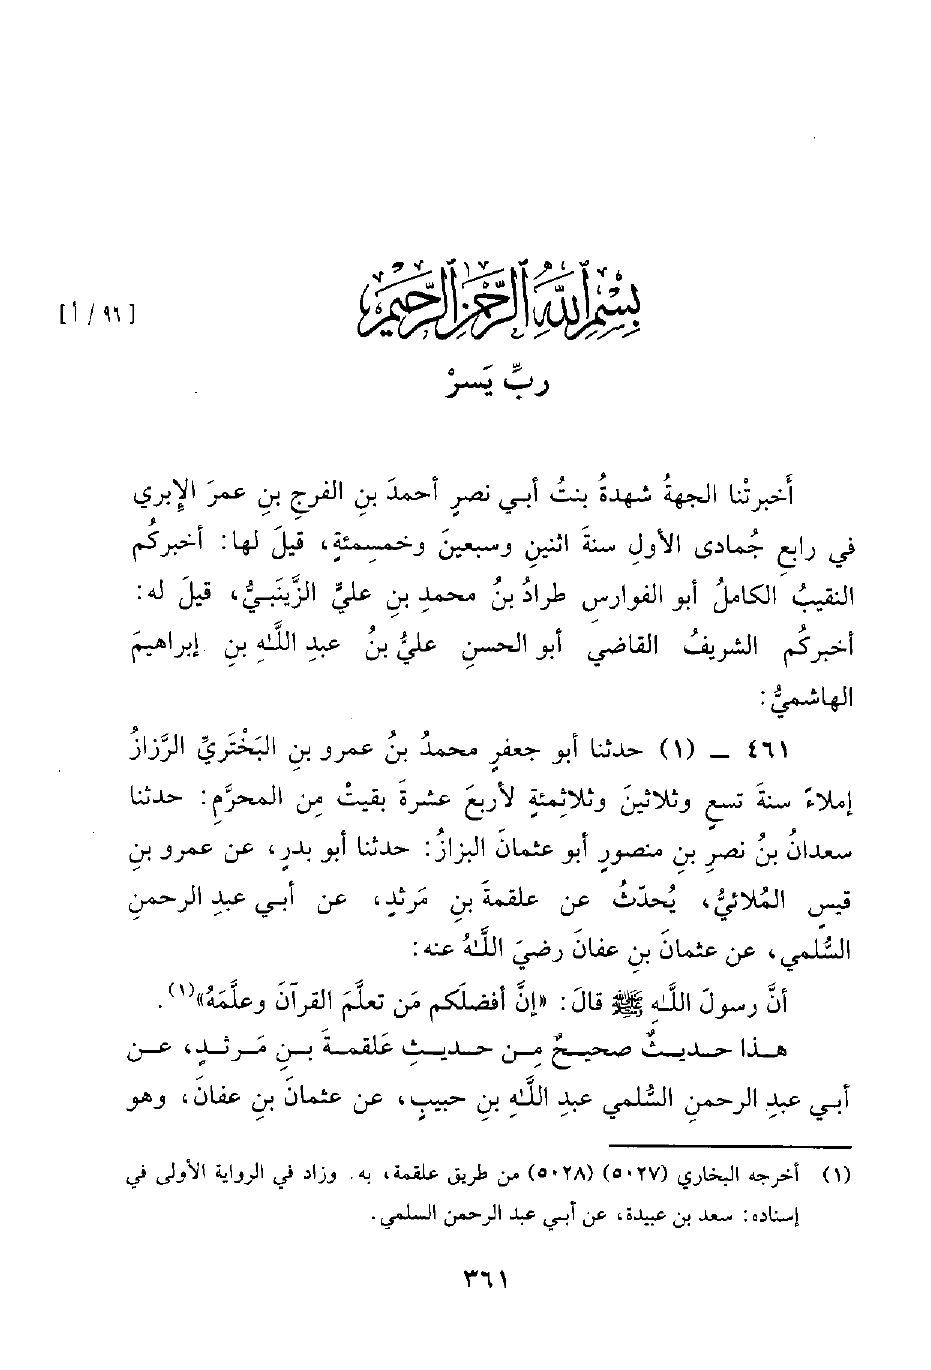 بِسْمِ اللَّهِ الرَّحْمَنِ الرَّحِيمِ
[٩٦/أ]
ربِّ يَسرْ
أَخبرتْنا الجهةُ شهدةُ بنتُ أبي نصرٍ أحمدَ بنِ الفرجِ بنِ عمرَ الإبري
في رابعِ جُمادى الأولِ سنةَ اثنينِ وسبعينَ وخمسِمئةٍ، قيلَ لها: أخبركُم
النقيبُ الكاملُ أبو الفوارسِ طرادُ بنُ محمدِ بنِ عليٍّ الزَّينَبيُّ، قيلَ له:
أخبركُم الشريفُ القاضي أبو الحسنِ عليُّ بنُ عبدِ اللَّهِ بنِ إبراهيمَ
الهاشميُّ:
٤٦١ ـ (١) حدثنا أبو جعفرٍ محمدُ بنُ عمرِو بنِ البَخْتَريِّ الرَّزازُ
إملاءً سنةَ تسعٍ وثلاثينَ وثلاثِمئةٍ لأربعَ عشرةَ بقيتْ مِن المحرَّمِ: حدثنا
سعدانُ بنُ نصرِ بنِ منصورٍ أبو عثمانَ البزازُ: حدثنا أبو بدرٍ، عن عمرِو بنِ
قيسٍ المُلائيُّ، يُحدّثُ عن علقمةَ بنِ مَرثدٍ، عن أبي عبدِ الرحمنِ
السُّلمي، عن عثمانَ بنِ عفانَ رضيَ اللَّهُ عنه:
أنَّ رسولَ اللَّهِ ﷺ قالَ: «إنَّ أفضلَكم مَن تعلَّمَ القرآنَ وعلَّمَهُ»(١).
هذا حديثٌ صحيحٌ مِن حديثِ عَلقمةَ بنِ مَرثدٍ، عن
أبي عبدِ الرحمنِ السُّلمي عبدِ اللَّهِ بنِ حبيبٍ، عن عثمانَ بنِ عفانَ، وهو
(١) أخرجه البخاري (٥٠٢٧) (٥٠٢٨) من طريق علقمة، به. وزاد في الرواية الأولى في
إسناده: سعد بن عبيدة، عن أبي عبد الرحمن السلمي.
٣٦١